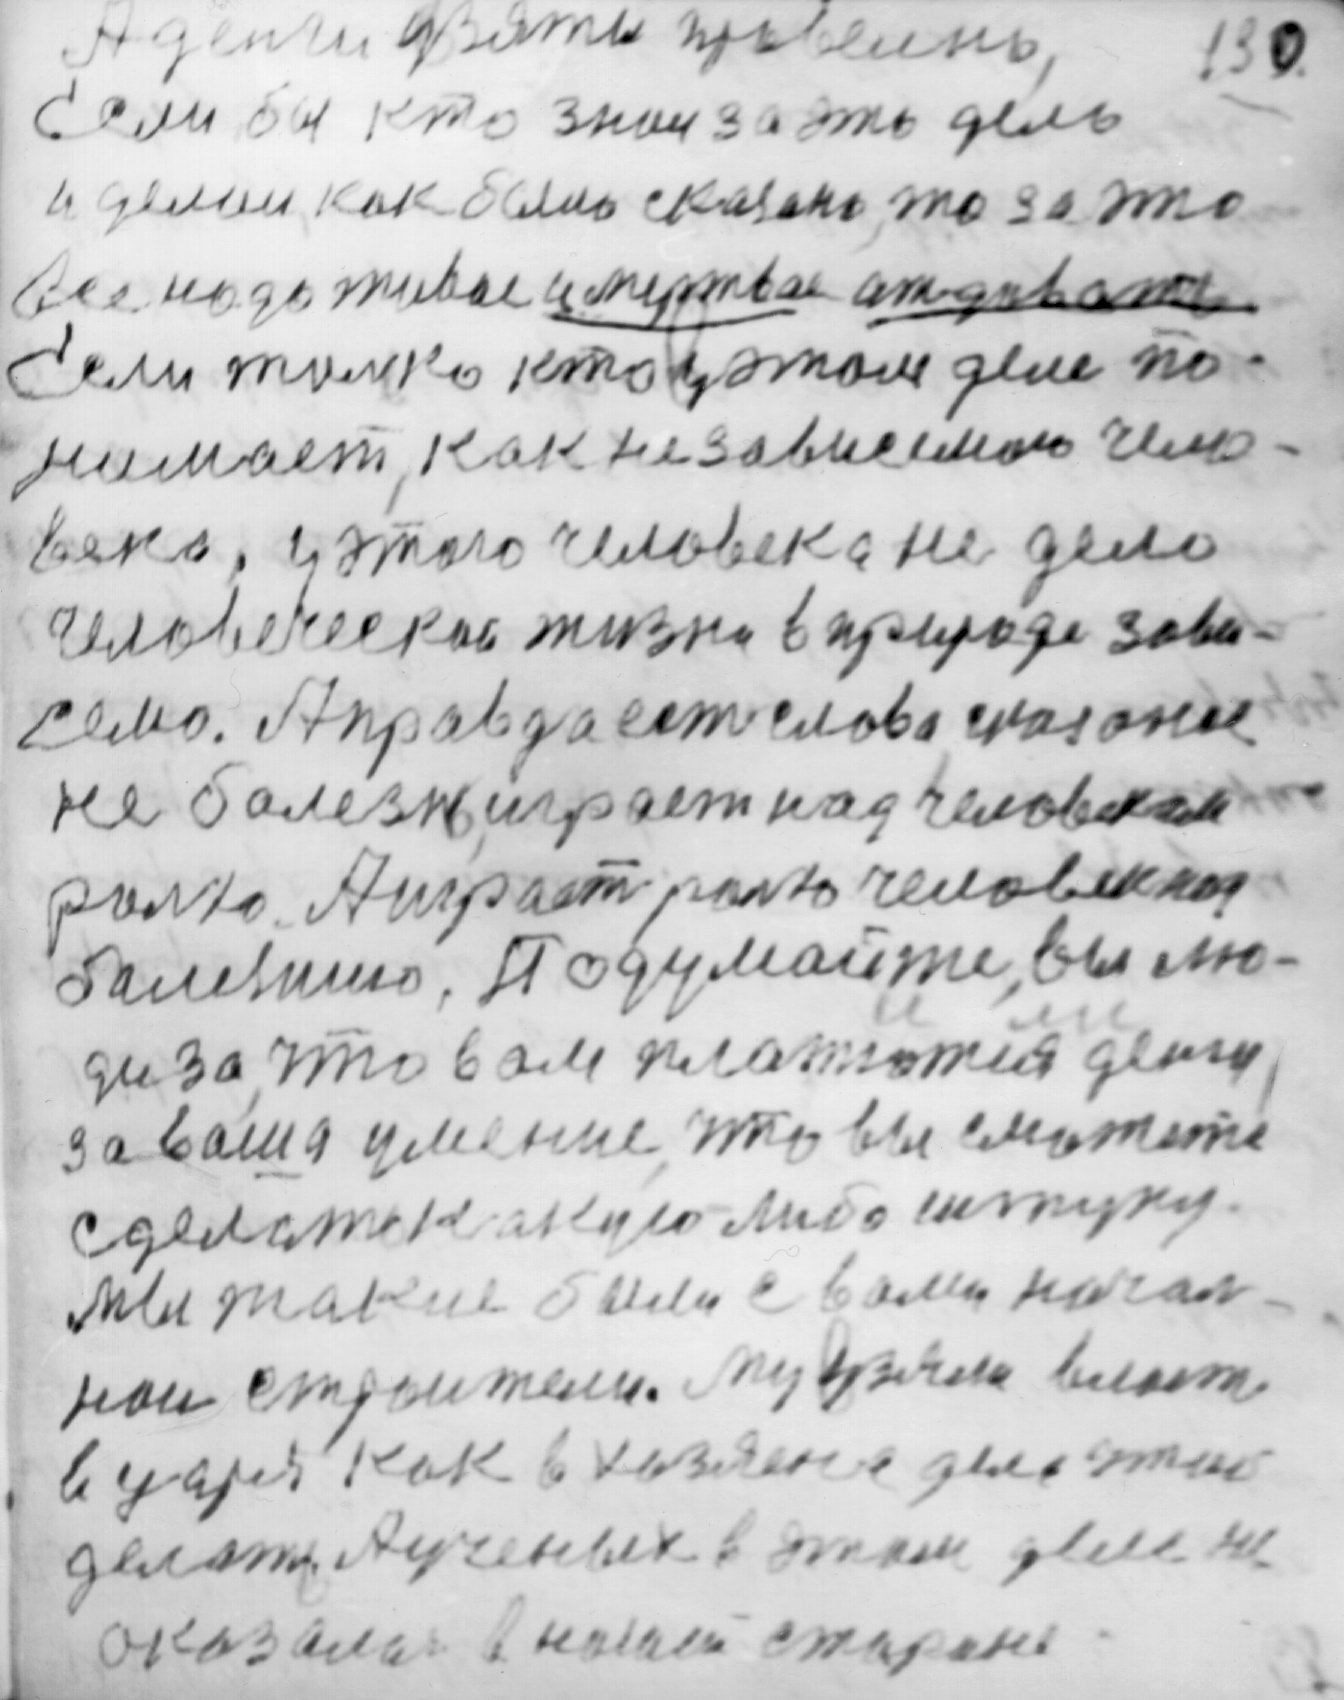 А денги узяты правелно, 130.
Если бы кто знал за эть дель
и делал, как было сказано, то за это
все надо живое и мертвое отдовать
Если толко кто у этом деле по-
нимает, как независемою чело-
века, у этого человека не дело
человеческой жизни в природе зави-
семо. А правда ест слова сказаные
не болезн, играет над человеком
ролю. А играет ролю человек над
болезнию. Подумайте, вы лю-
ди за, что вам платются денги
за ваша умение, что вы сможете
сделат какую либо штуку.
Мы такие были с вами начал-
нои строители. Мы узяли власт
в царя как в хозяена дела этой
делат. А ученых в этом деле не
оказалас в нашей стороне